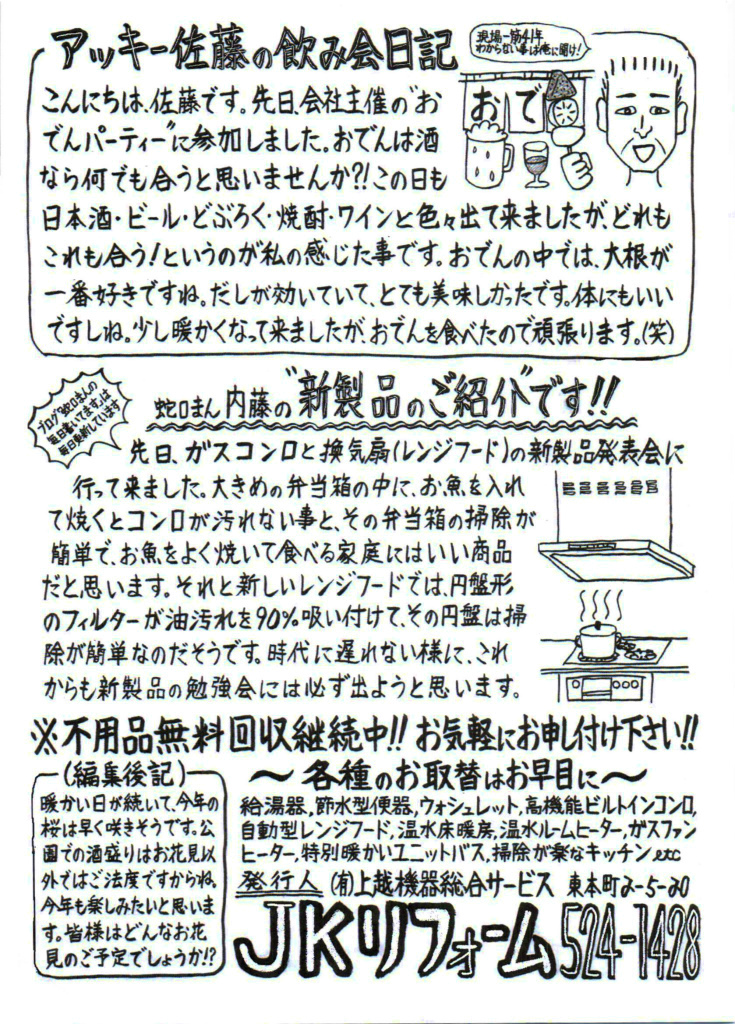 アッキー佐藤の飲み会日記
現場一筋41年
わからない事は俺に聞け!
おで
こんにちは、佐藤です。先日、会社主催の"お
でんパーティー"に参加しました。おでんは酒
なら何でも合うと思いませんか?!この日も
日本酒・ビール・どぶろく・焼酎・ワインと色々出て来ましたが、どれも
これも合う!というのが私の感じた事です。おでんの中では、大根が
一番好きですね。だしが効いていて、とても美味しかったです。体にもいい
ですしね。少し暖かくなって来ましたが、おでんを食べたので頑張ります。(笑)
ブログ「蛇口まんの
毎日書いてます」は
毎日更新しています
蛇口まん内藤の"新製品のご紹介"です!!
先日、ガスコンロと換気扇(レンジフード)の新製品発表会に
行って来ました。大きめの弁当箱の中に、お魚を入れ
て焼くとコンロが汚れない事と、その弁当箱の掃除が
簡単で、お魚をよく焼いて食べる家庭にはいい商品
だと思います。それと新しいレンジフードでは、円盤形
のフィルターが油汚れを90%吸い付けて、その円盤は掃
除が簡単なのだそうです。時代に遅れない様に、これ
からも新製品の勉強会には必ず出ようと思います。
※不用品無料回収継続中!!お気軽にお申し付け下さい!!
(編集後記)
暖かい日が続いて、今年の
桜は早く咲きそうです。公
園での酒盛りはお花見以
外ではご法度ですからね。
今年も楽しみたいと思いま
す。皆様はどんなお花
見のご予定でしょうか!?
〜各種のお取替はお早目に〜
給湯器,節水型便器,ウォシュレット,高機能ビルトインコンロ,
自動型レンジフード,温水床暖房,温水ルームヒーター,ガスファン
ヒーター,特別暖かいユニットバス,掃除が楽なキッチンetc
発行人 (有)上越機器総合サービス 東本町2-5-20
JKリフォーム 524-1428